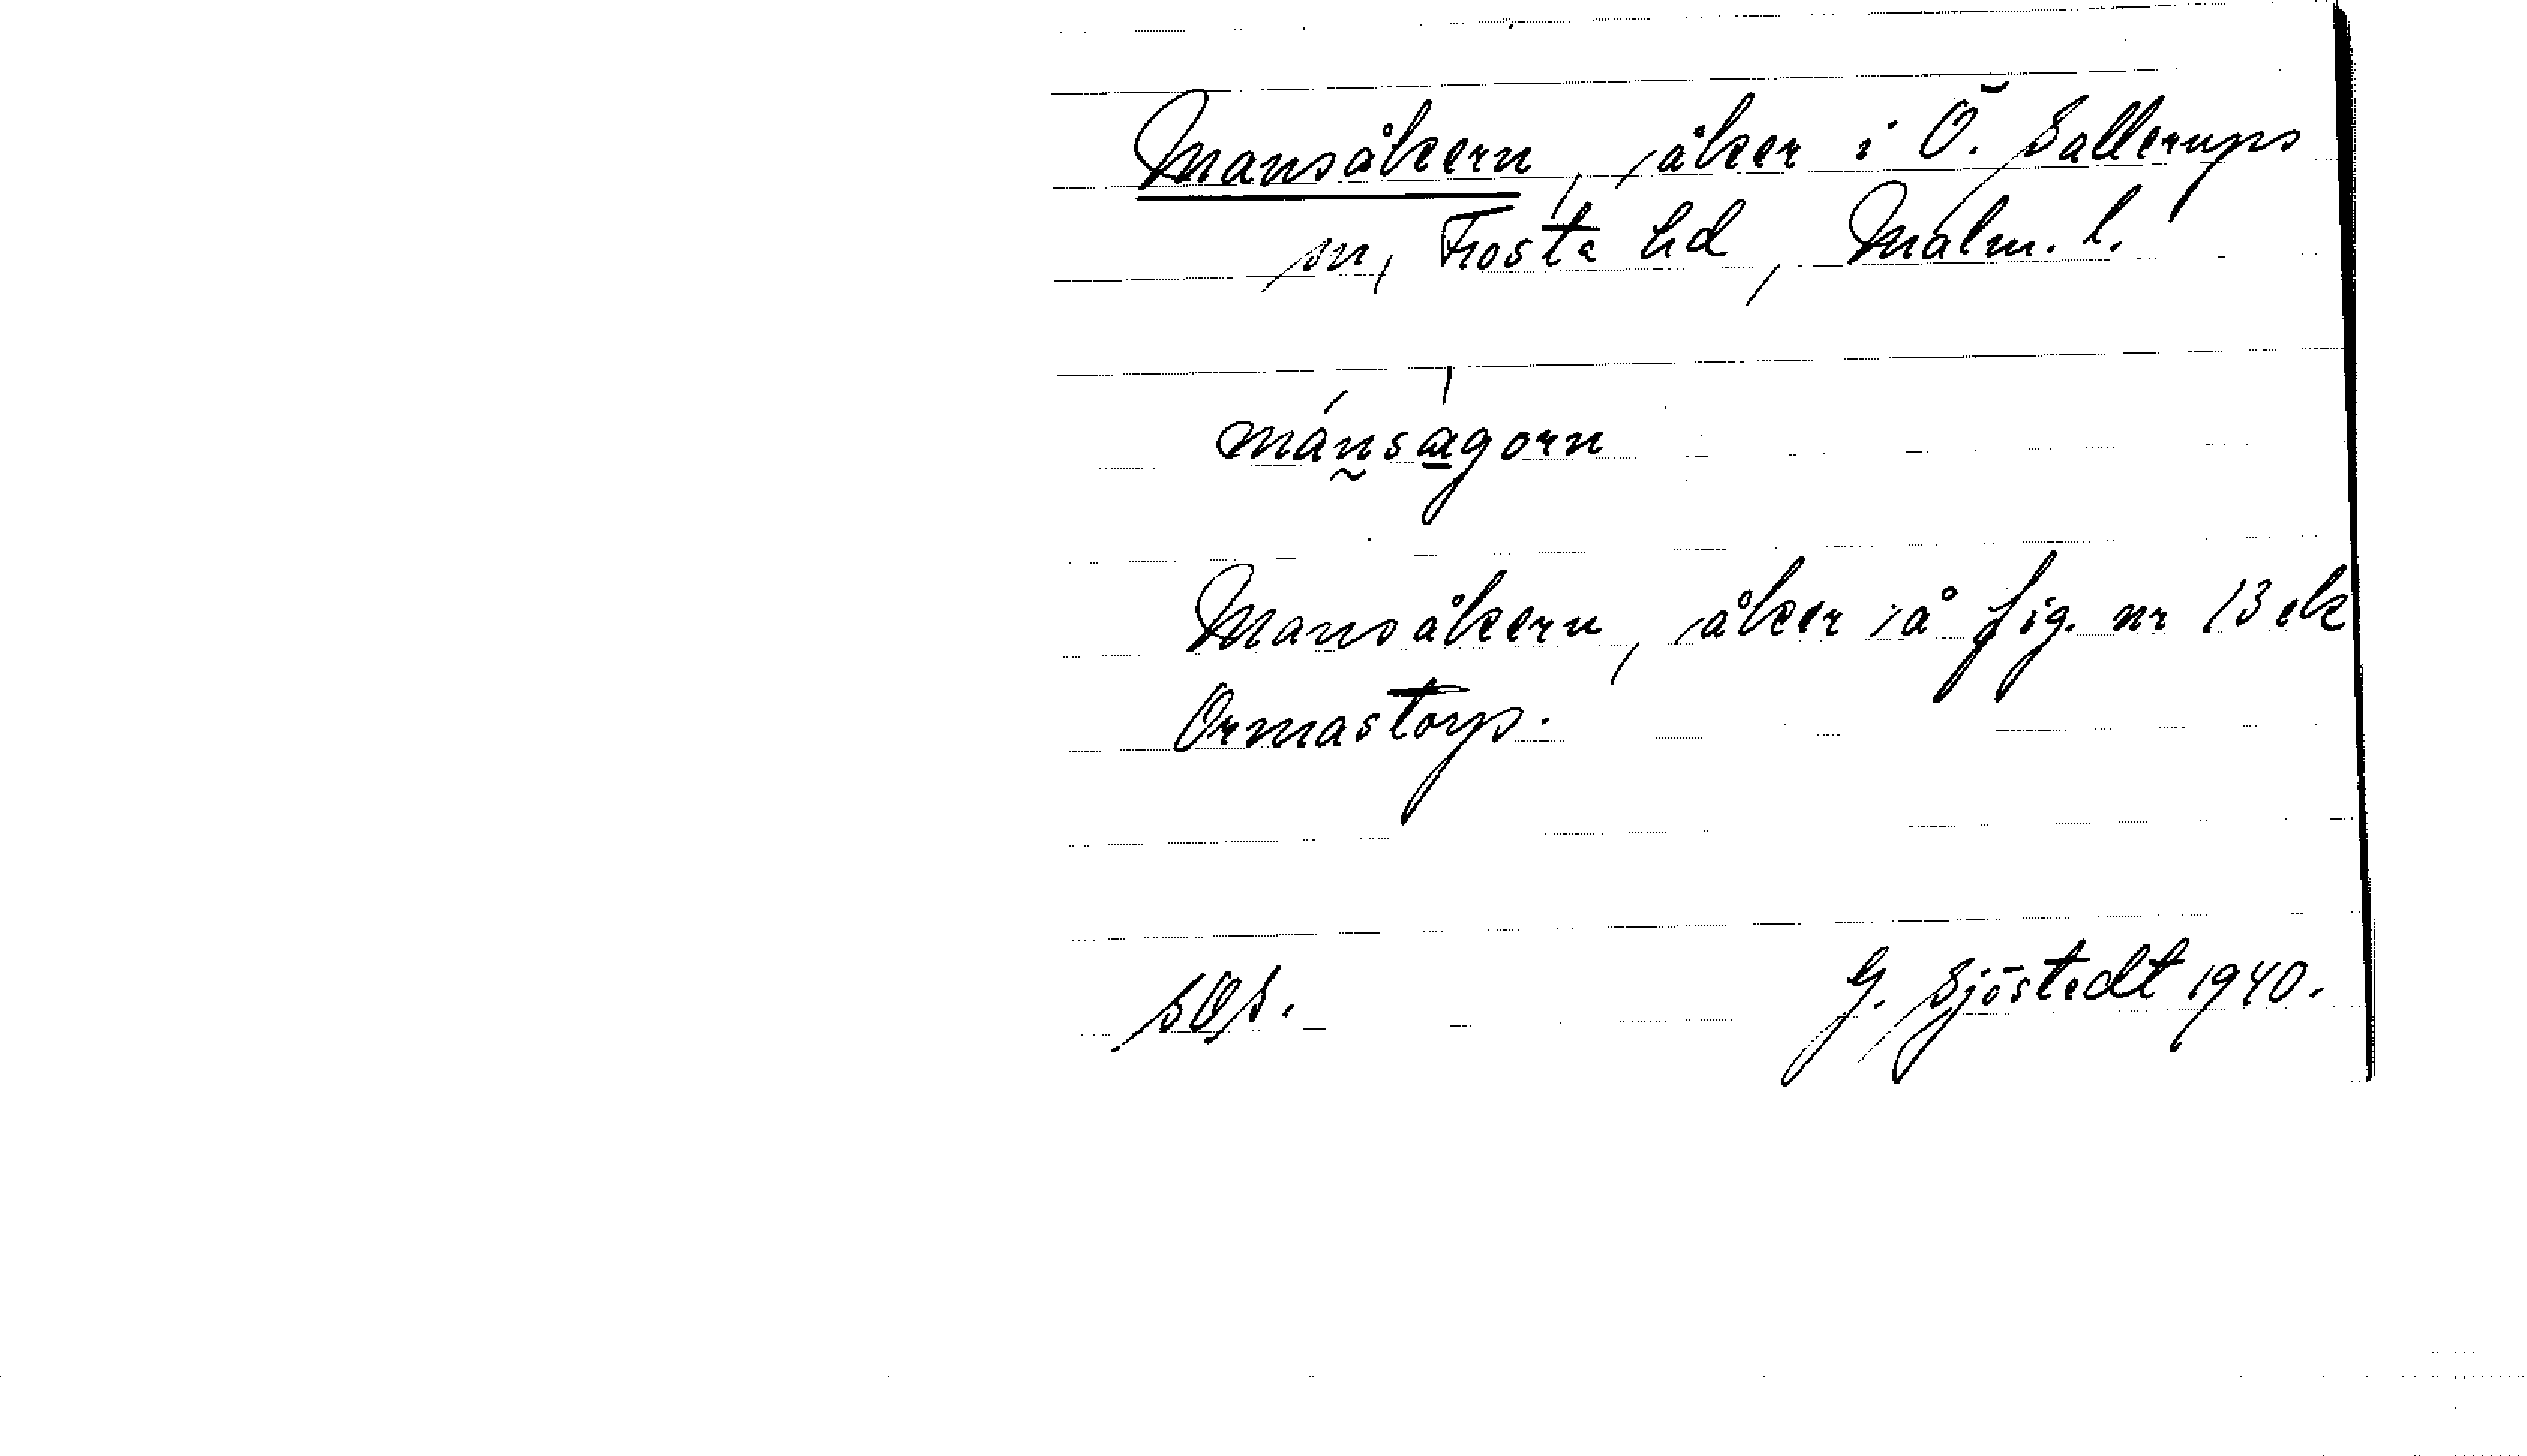 Mansåkern, åker i Ö. Sallerups
sn, Frosta hd, Malm. l.
mánsàgorn
Mansåkern, åker å fig. nr 13 ek
Ormastorp.
G. Sjöstedt 1940.